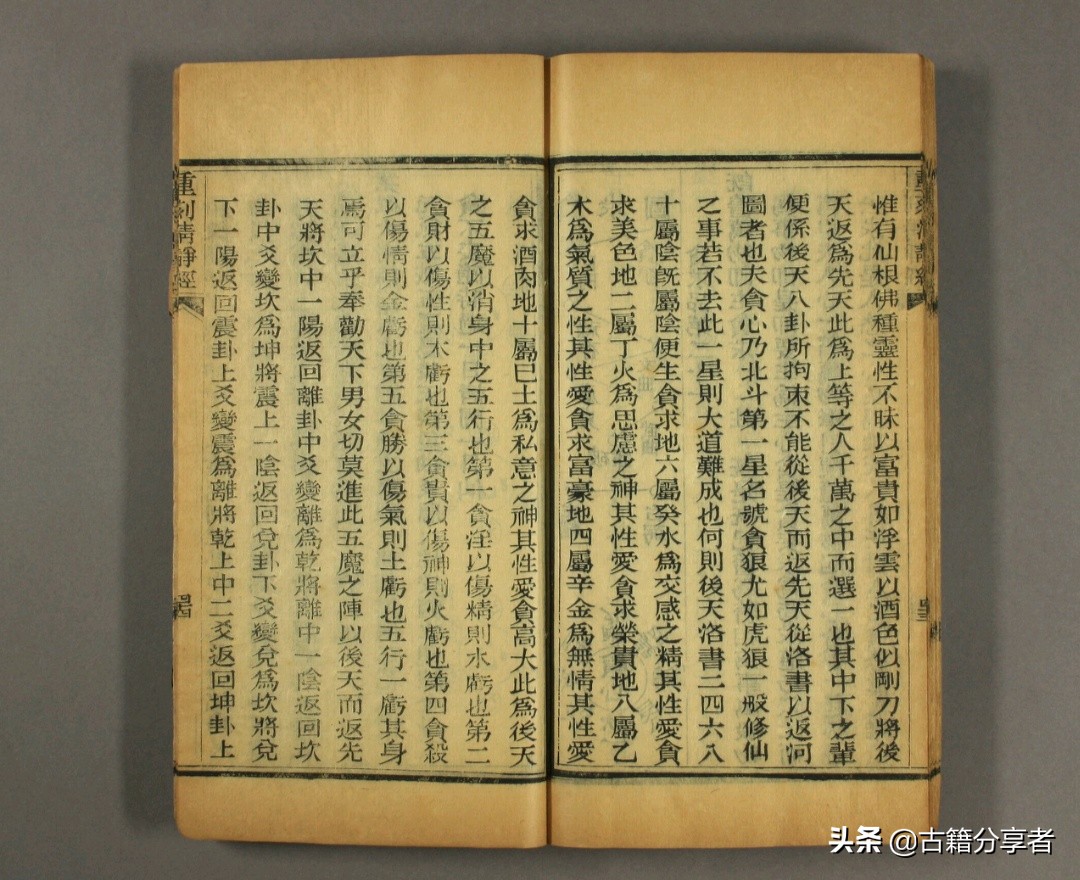 惟有仙根佛種靈性不昧以富貴如浮雲以酒色似剛刀將後
天返爲先天此爲上等之人千萬之中而選一也其中下之輩
便係後天八卦所拘束不能從後天而返先天從洛書以返河
圖者也夫貪心乃北斗第一星名號貪狼尤如虎狼一般修仙
之事若不去此一星則大道難成也何則後天洛書二四六八
十屬陰旣屬陰便生貪求地六屬癸水爲交感之精其性愛貪
求美色地二屬丁火爲思慮之神其性愛貪求榮貴地八屬乙
木爲氣質之性其性愛貪求富豪地四屬辛金爲無情其性愛
貪求酒肉地十屬巳土爲私意之神其性愛貪高大此爲後天
之五魔以消身中之五行也第一貪淫以傷精則水虧也第二
貪財以傷性則木虧也第三貪貴以傷神則火虧也第四貪殺
以傷情則金虧也第五貪勝以傷氣則土虧也五行一虧其身
焉可立乎奉勸天下男女切莫進此五魔之陣以後天而返先
天將坎中一陽返回離卦中爻變離爲乾將離中一陰返回坎
卦中爻變坎爲坤將震上一陰返回兌卦下爻變兌爲坎將兌
下一陽返回震卦上爻變震爲離將乾上中二爻返回坤卦上
重刻清靜經
头条 @古籍分享者